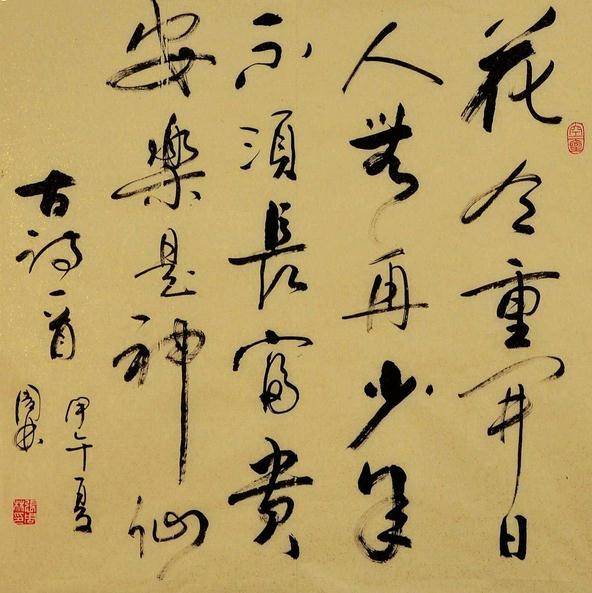 花令重開日
人無再少年
不須長富貴
安樂是神仙
古詩一首
甲午夏